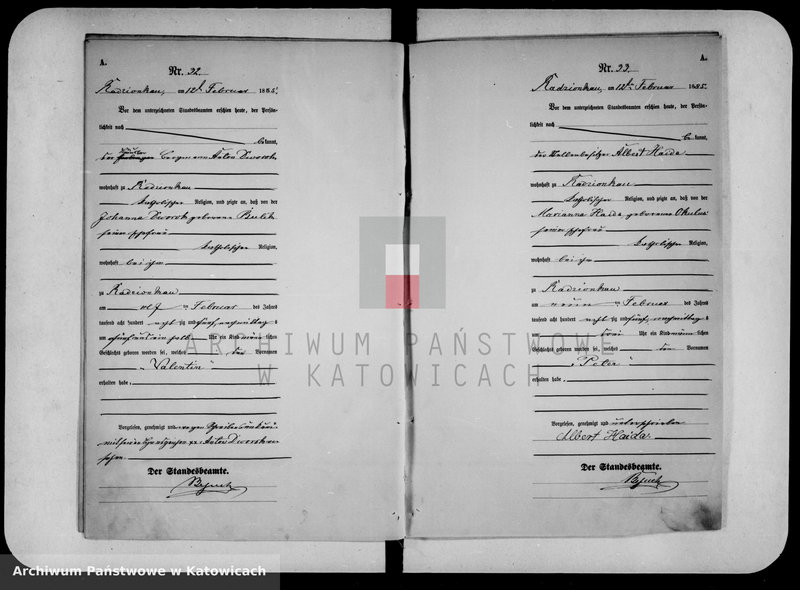 A.
Nr. 32.
Radzionkau, am 12t Februar 1885.
Vor dem unterzeichneten Standesbeamten erschien heute, der Persön-
lichkeit nach
be kannt,
der Häusler
Bergmann Anton Dworok
wohnhaft zu Radzionkau
katholischer Religion, und zeigte an, daß von der
Johanna Dworok geborene
seiner Ehefrau
katholischer Religion,
wohnhaft bei ihm
zu Radzionkau
am elf ten Februar des Jahres
tausend acht hundert acht zig und fünf, nachmittag s
um halb Uhr ein Kind männ lichen
Geschlechts geboren worden sei, welches den Vornamen
"Valentin"
erhalten habe.
Vorgelesen, genehmigt und wegen Schreibens
mit seinem Handzeichen xxx Anton Dworok ver
sehen.
Der Standesbeamte.
A.
Nr. 33.
Radzionkau, am 12t Februar 1885.
Vor dem unterzeichneten Standesbeamten erschien heute, der Persön-
lichkeit nach
be kannt,
der Albert Haida
wohnhaft zu Radzionkau
katholischer Religion, und zeigte an, daß von der
Marianna Haida geborene
seiner Ehefrau
katholischer Religion,
wohnhaft bei ihm
zu Radzionkau
am neun ten Februar des Jahres
tausend acht hundert acht zig und fünf, nachmittag s
um drei Uhr ein Kind männ lichen
Geschlechts geboren worden sei, welches den Vornamen
"Peter"
erhalten habe.
Vorgelesen, genehmigt und unterschrieben
Albert Haida
Der Standesbeamte.
ARCHIWUM PAŃSTWOWE
W KATOWICACH
Archiwum Państwowe w Katowicach